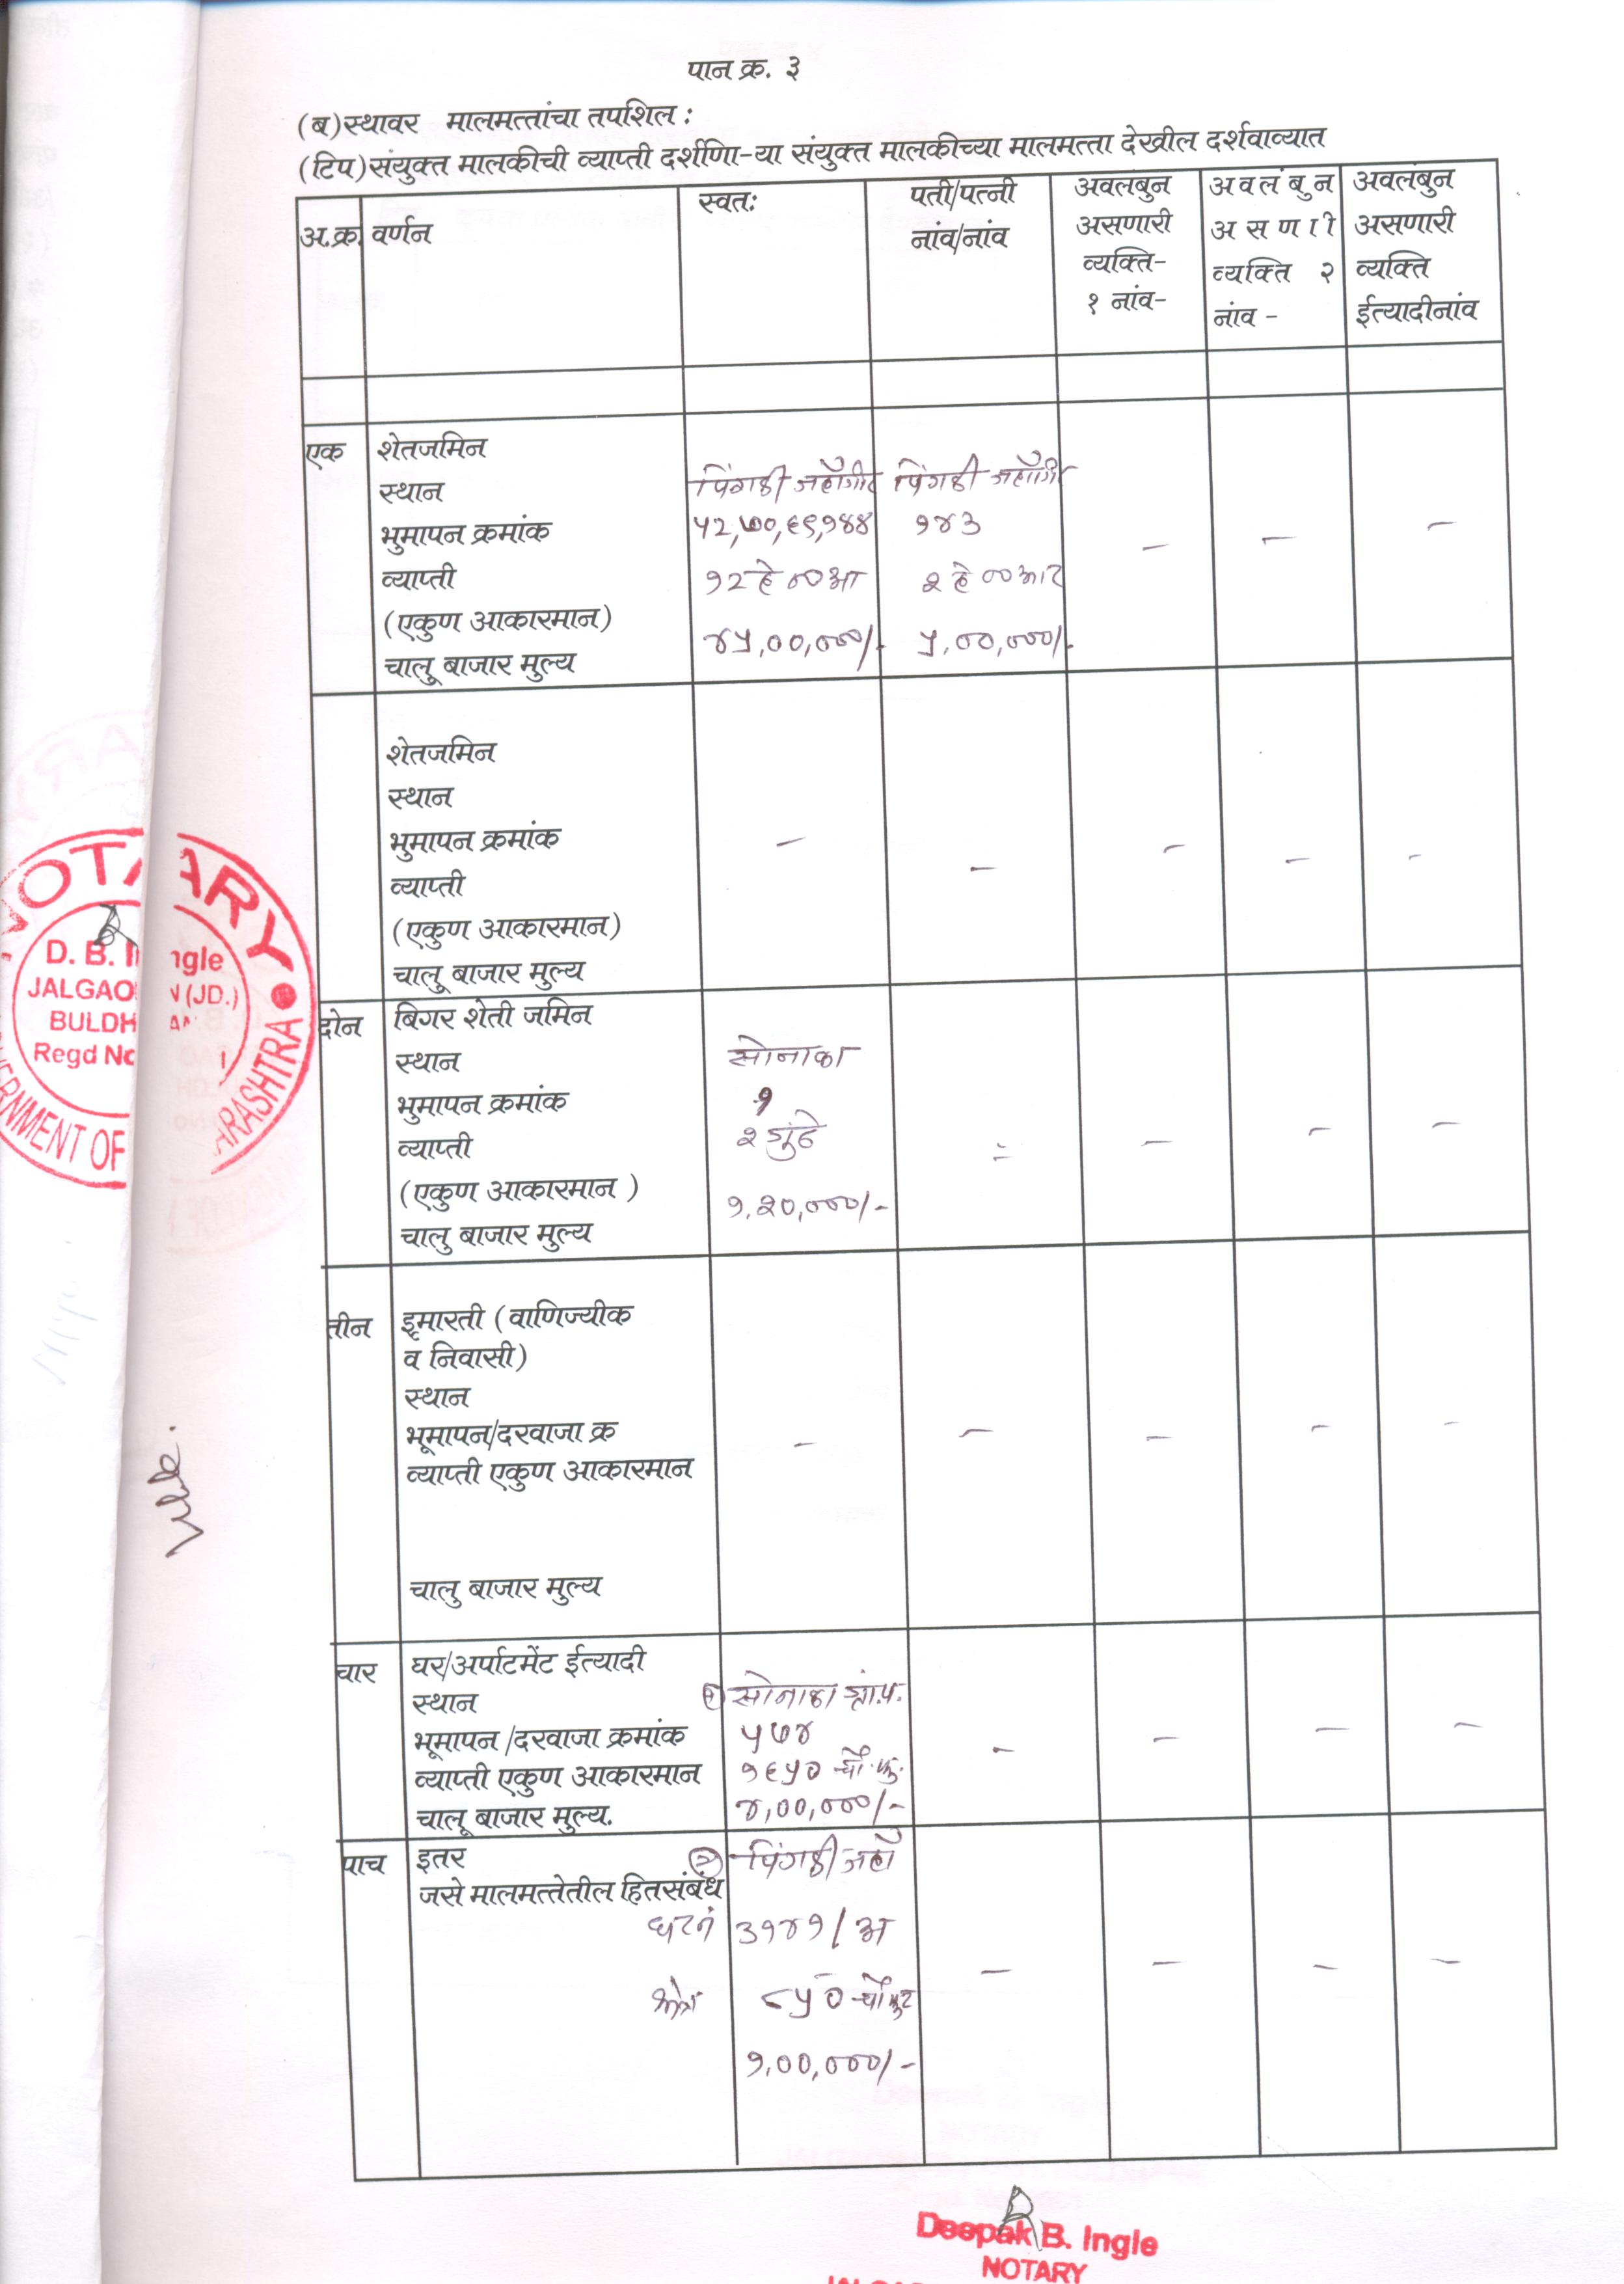 पान क्र. ३
(ब)स्थावर मालमत्तांचा तपशिल :
(टिप)संयुक्त मालकीची व्याप्ती दर्शणिा-या संयुक्त मालकीच्या मालमत्ता देखील दर्शवाव्यात
अ.क्र. वर्णन
स्वतः
पती/पत्नी
नांव/नांव
अवलंबुन
असणारी
व्यक्ति-
१ नांव-
अवलंबुन
असणारी
व्यक्ति २
नांव -
अवलंबुन
असणारी
व्यक्ति
ईत्यादीनांव
एक शेतजमिन
स्थान पिंगळी जहाँगीर पिंगळी जहाँगीर
भुमापन क्रमांक १४३
व्याप्ती १२ हे ०० आ २ हे ०० आर
(एकुण आकारमान)
चालु बाजार मुल्य ४५,००,०००/- ५,००,०००/-
शेतजमिन
स्थान
भुमापन क्रमांक
व्याप्ती
(एकुण आकारमान)
चालु बाजार मुल्य
दोन बिगर शेती जमिन
स्थान सोनाळा
भुमापन क्रमांक १
व्याप्ती २ गुंठे
(एकुण आकारमान )
चालु बाजार मुल्य १,२०,०००/-
तीन इमारती (वाणिज्यीक
व निवासी)
स्थान
भूमापन/दरवाजा क्र
व्याप्ती एकुण आकारमान
चालु बाजार मुल्य
चार घर/अर्पाटमेंट ईत्यादी
स्थान सोनाळा ग्रां.प.
भूमापन /दरवाजा क्रमांक ५७४
व्याप्ती एकुण आकारमान १६५० चौ.फु.
चालू बाजार मुल्य. ४,००,०००/-
पाच इतर २ पिंगळी जहाँ
जसे मालमत्तेतील हितसंबंध
घरनं ३१४१/अ
क्षेत्र ८५० चौ फुट
१,००,०००/-
NOTARY
D. B. Ingle
JALGAON (JD.)
BULDHANA
Regd No
GOVERNMENT OF MAHARASHTRA
Deepak B. Ingle
NOTARY